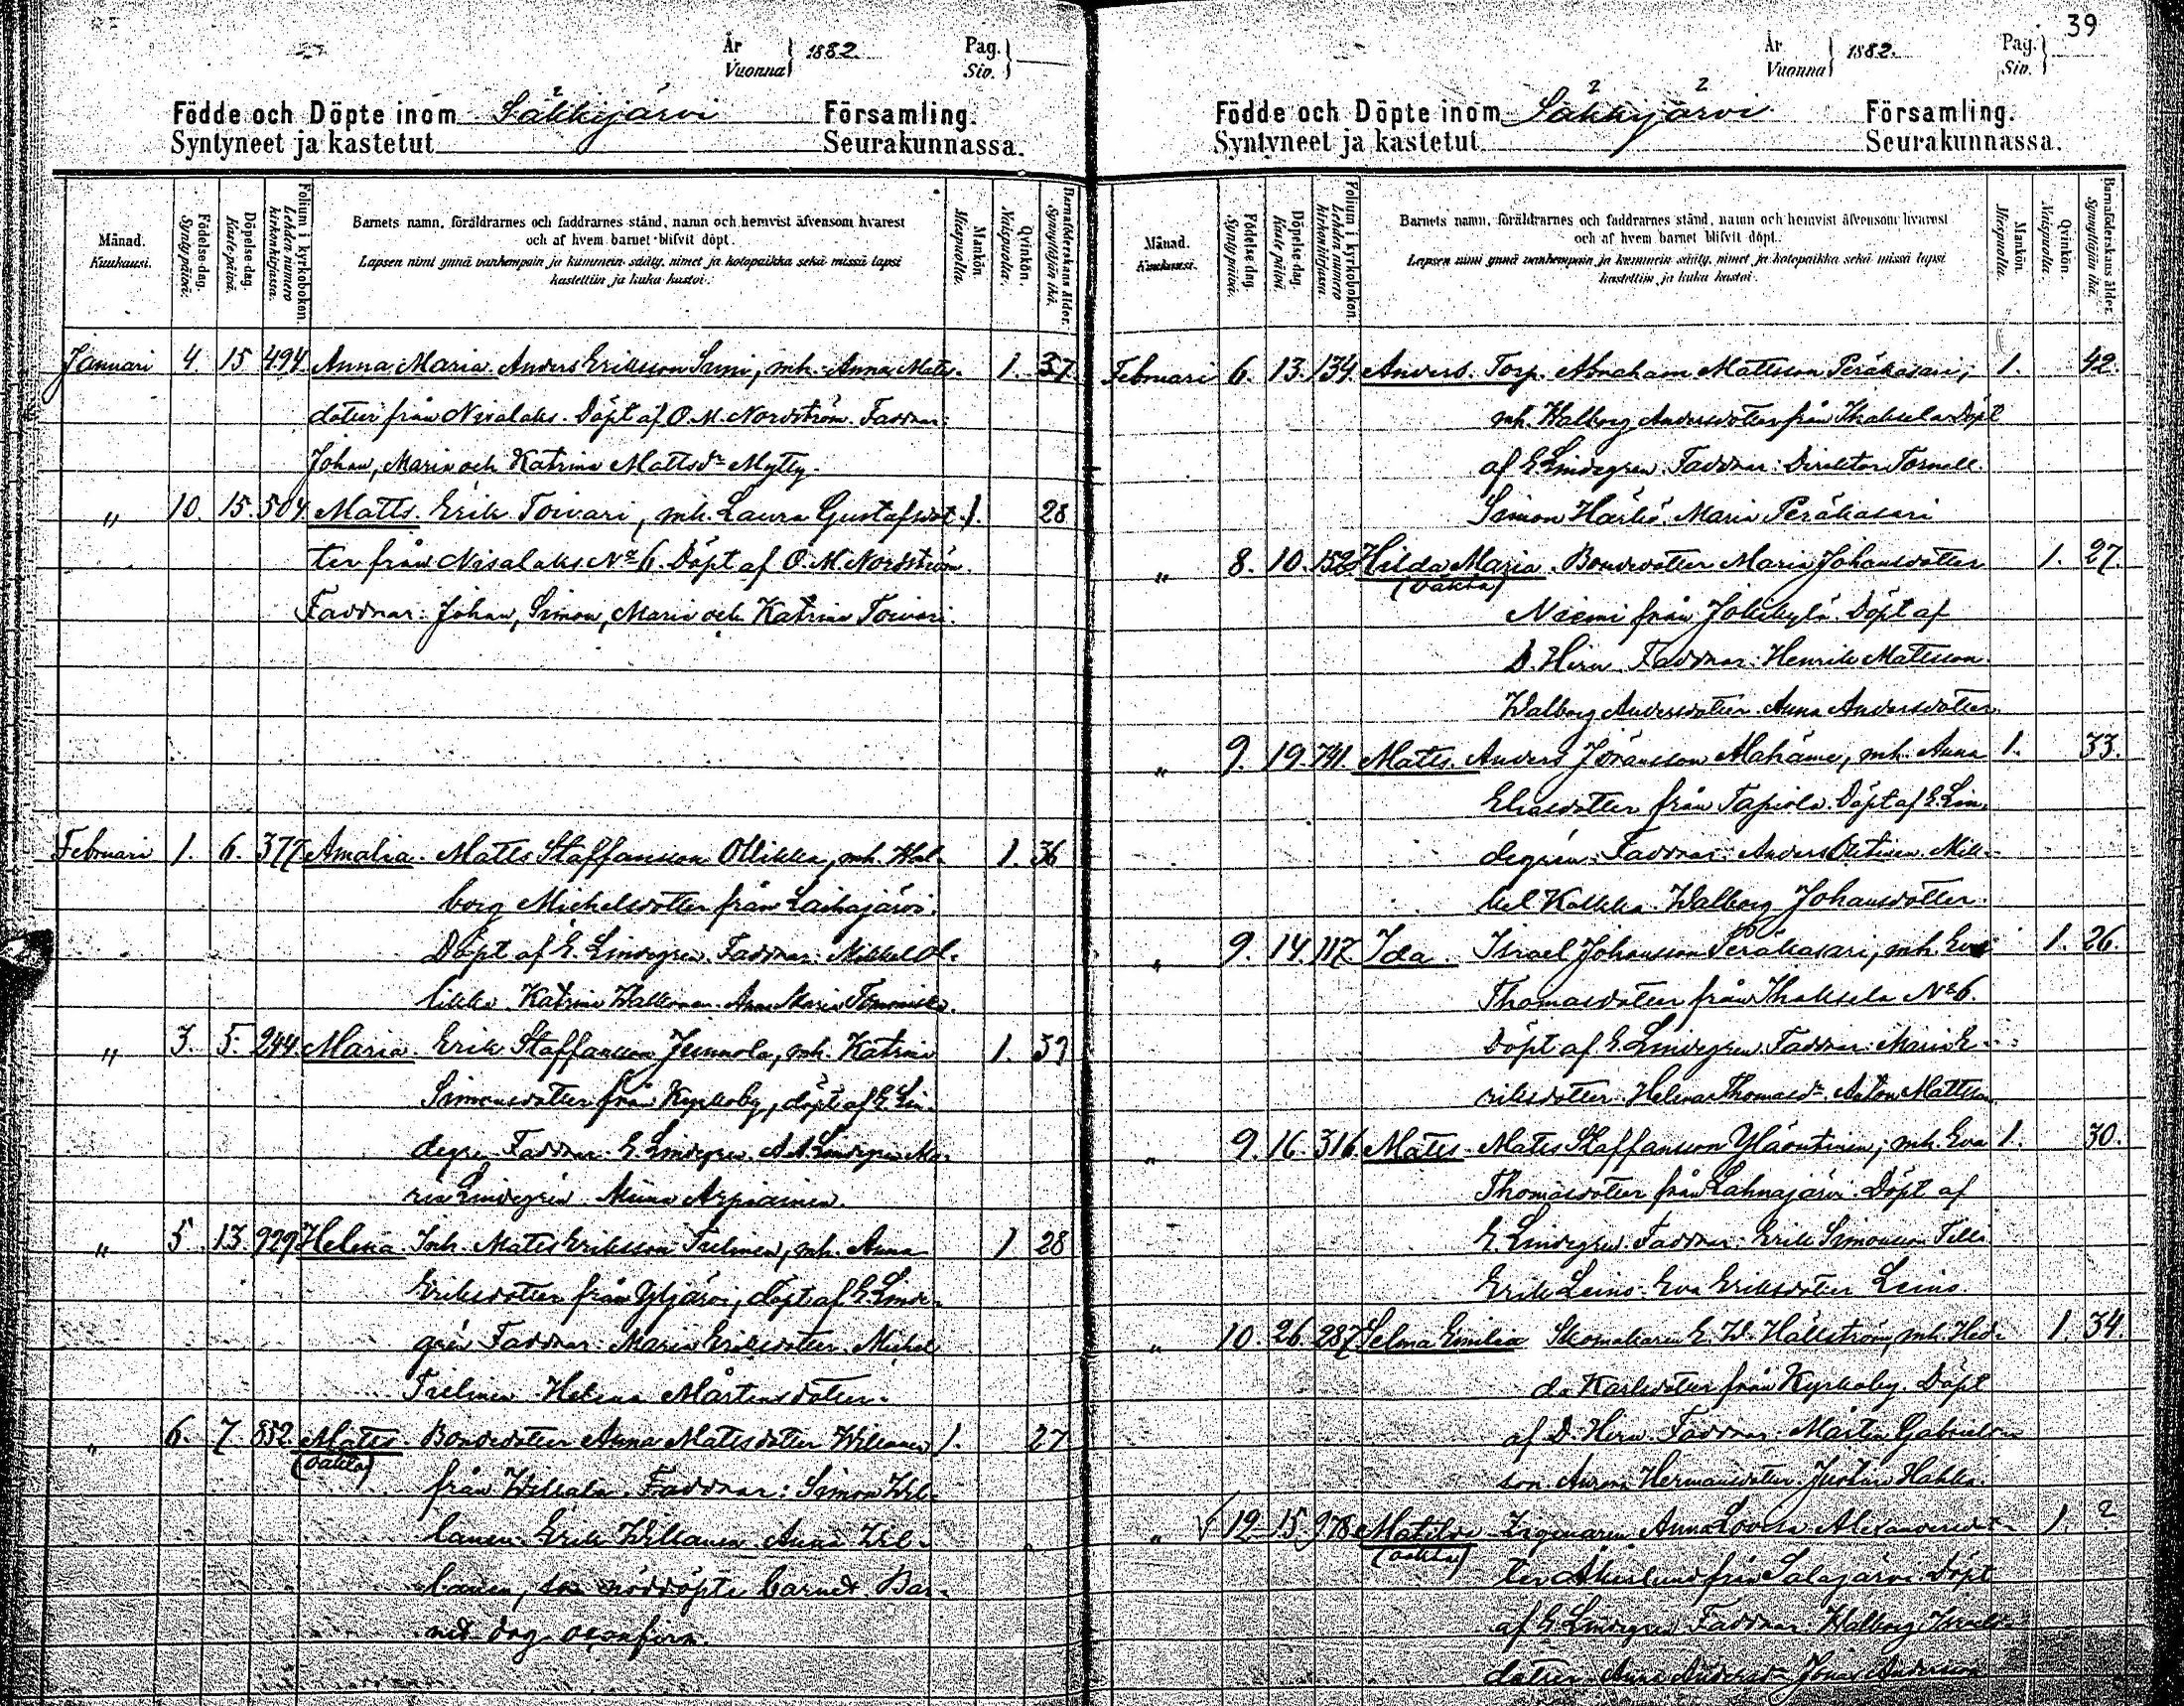 39
År
Vuonna } 1882. Pag.
Siv. }
Födde och Döpte inom Säkkijärvi Församling.
Syntyneet ja kastetut Seurakunnassa.
Månad.
Kuukausi.
Födelse-dag.
Syntypäivä.
Döpelse-dag.
Kastepäivä.
Folium i kyrkoboken.
Lehden numero kirkonkirjassa.
Barnets namn, föräldrarnes och faddrarnes stånd, namn och hemvist äfvensom hvarest
och af hvem barnet blifvit döpt.
Lapsen nimi ynnä vanhempain ja kummein sääty, nimet ja kotopaikka sekä missä lapsi
kastettiin ja kuka kastoi.
Mankön.
Miespuolta.
Qvinkön.
Naispuolta.
Barnaföderskans ålder.
Synnyttäjän ikä.
Januari 4. 15 494. Anna Maria Anders Eriksson Suni, mh. Anna Matts- 1. 37.
dotter från Nisalaks. Döpt af O. M. Nordström. Faddrar:
Johan, Maria och Katrina Mattsdr Mytty.
" 10. 15. 504. Matts. Erik Toivari, mh. Laura Gustafsdot- 1. 28
ter från Nisalaks No 6. Döpt af O. M. Nordström.
Faddrar: Johan, Simon, Maria och Katrina Toivari.
Februari 1. 6. 377 Amalia. Matts Staffansson Ollikka, mh. Wal- 1. 36
borg Michelsdotter från Laihajärvi.
Döpt af E. Lindegren. Faddrar: Mikkel Ol-
likka. Katrina Walkonen. Anna Maria
" 3. 5. 244. Maria. Erik Staffansson Junnola, mh. Katrina 1. 39
Simonsdotter från Kyrkoby, döpt af E. Lin-
degren Faddrar: E. Lindegren. A. A. Lindegren Ma-
ria Lindegren. Miina Arpiainen.
" 5. 13. 929 Helena. Inh. Matts Eriksson mh. Anna 1 28
Eriksdotter från Yljärvi, döpt af E. Linde-
gren Faddrar: Maria Eriksdotter. Michel
Helena Mårtensdotter.
" 6. 7. 852. Matts. Bondedotter Anna Mattsdotter Wilkanen 1. 27
(oäkta)
från Wilkala. Faddrar: Simon Wil-
kanen. Erik Wilkanen. Anna Wil-
kanen, som nöddöpte barnet. Bar-
net dog
År
Vuonna } 1882. Pag.
Siv. }
Födde och Döpte inom Säkkijärvi Församling.
Syntyneet ja kastetut Seurakunnassa.
Månad.
Kuukausi.
Födelse-dag.
Syntypäivä.
Döpelse-dag.
Kastepäivä.
Folium i kyrkoboken.
Lehden numero kirkonkirjassa.
Barnets namn, föräldrarnes och faddrarnes stånd, namn och hemvist äfvensom hvarest
och af hvem barnet blifvit döpt.
Lapsen nimi ynnä vanhempain ja kummein sääty, nimet ja kotopaikka sekä missä lapsi
kastettiin ja kuka kastoi.
Mankön.
Miespuolta.
Qvinkön.
Naispuolta.
Barnaföderskans ålder.
Synnyttäjän ikä.
Februari 6. 13. 134. Anders. Torp. Abraham Mattsson Peräkasari, 1. 42.
mh. Walborg Andersdotter från Ihaksela Döpt
af E. Lindegren. Faddrar: Direktor Tornell.
Simon Härkö. Maria Peräkasari
" 8. 10. 152. Hilda Maria. Bondedotter Maria Johansdotter 1. 27.
(oäkta)
Niemi från Jokikylä. Döpt af
D. Hirn. Faddrar: Henrik Mattsson.
Walborg Andersdotter. Anna Andersdotter.
" 9. 19. 741. Matts. Anders Jöransson Mahäme, mh. Anna 1. 33.
Eliasdotter från Tapiola. Döpt af E. Lin-
degren. Faddrar: Anders Mik-
kel Kalkka. Walborg Johansdotter.
" 9. 14. 117. Ida. Israel Johansson Peräkasari, mh. Eva 1. 26.
Thomasdotter från Ihaksela No 6.
Döpt af E. Lindegren. Faddrar: Maria E-
riksdotter. Helena Thomasdr. Anton Mattsson.
" 9. 16. 316. Matts. Matts Staffansson Yläoutinen, mh. Eva 1. 30.
Thomasdotter från Lahnajärvi. Döpt af
E. Lindegren. Faddrar: Erik Simonsson Filli.
Erik Leino. Eva Eriksdotter Leino.
" 10. 26. 287. Selma Emilia Skomakaren E. W. Hällström, mh. Hed- 1. 34.
da Karlsdotter från Kyrkoby. Döpt
af D. Hirn. Faddrar: Mårten Gabriels-
son. Aurora Hermansdotter. Justina Hakka.
" √ 12 15. 978 Matilda Anna Lovisa Alexandersdot- 1. ?
(oäkta)
ter Åkerlund från Salajärvi. Döpt
af E. Lindegren Faddrar: Walborg Israels-
dotter. Anna Andersdr Jonas Andersson